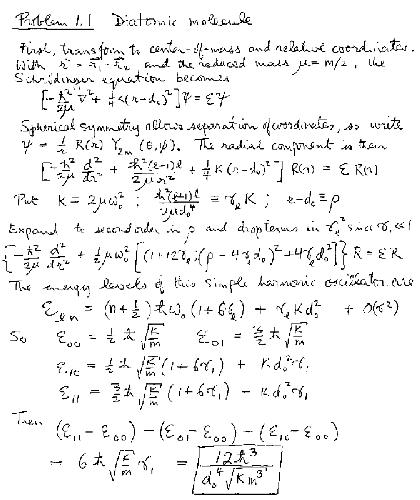 Problem 1.1 Diatomic molecule
First, transform to center-of-mass and relative coordinates.
With r = r₁ - r₂ and the reduced mass μ = m/2, the
Schrödinger equation becomes
[-ħ²/2μ ∇² + ¼ K(r-d₀)²] ψ = ℰψ
Spherical symmetry allows separation of coordinates, so write
ψ = 1/r R(r) Yℓm (θ,φ). The radial component is then
[-ħ²/2μ d²/dr² + ħ²(ℓ+1)ℓ/2μr² + ¼ K(r-d₀)²] R(r) = ℰ R(r)
Put K = 2μω₀² ; ħ²(ℓ+1)ℓ/2μd₀⁴ = γℓ K ; r-d₀ = ρ
Expand to second order in ρ and drop terms in γℓ² since γℓ ≪ 1
{-ħ²/2μ d²/dr² + ½μω₀² [(1+12γℓ)(ρ - 4γℓd₀)² + 4γℓd₀²]} R = ℰR
The energy levels of this simple harmonic oscillator are
ℰℓn = (n+½) ħω₀ (1+6γℓ) + γℓ K d₀² + O(γ²)
So ℰ₀₀ = ½ ħ √(K/m) ℰ₀₁ = 3/2 ħ √(K/m)
ℰ₁₀ = ½ ħ √(K/m) (1+6γ₁) + K d₀² γ₁
ℰ₁₁ = 3/2 ħ √(K/m) (1+6γ₁) - K d₀² γ₁
Then
(ℰ₁₁ - ℰ₀₀) - (ℰ₀₁ - ℰ₀₀) - (ℰ₁₀ - ℰ₀₀)
= 6 ħ √(K/m) γ₁ = 12 ħ³/d₀⁴ √(K m³)